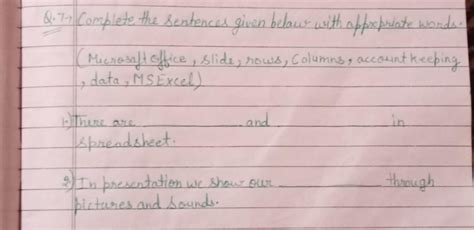 Q.7→ Complete the sentences given below with appropriate words.
(Microsoft office, slide, rows, Columns, account keeping
, data, MS Excel)
1→) There are ______ and ______ in
spreadsheet.
2) In presentation we show our ______ through
pictures and sounds.